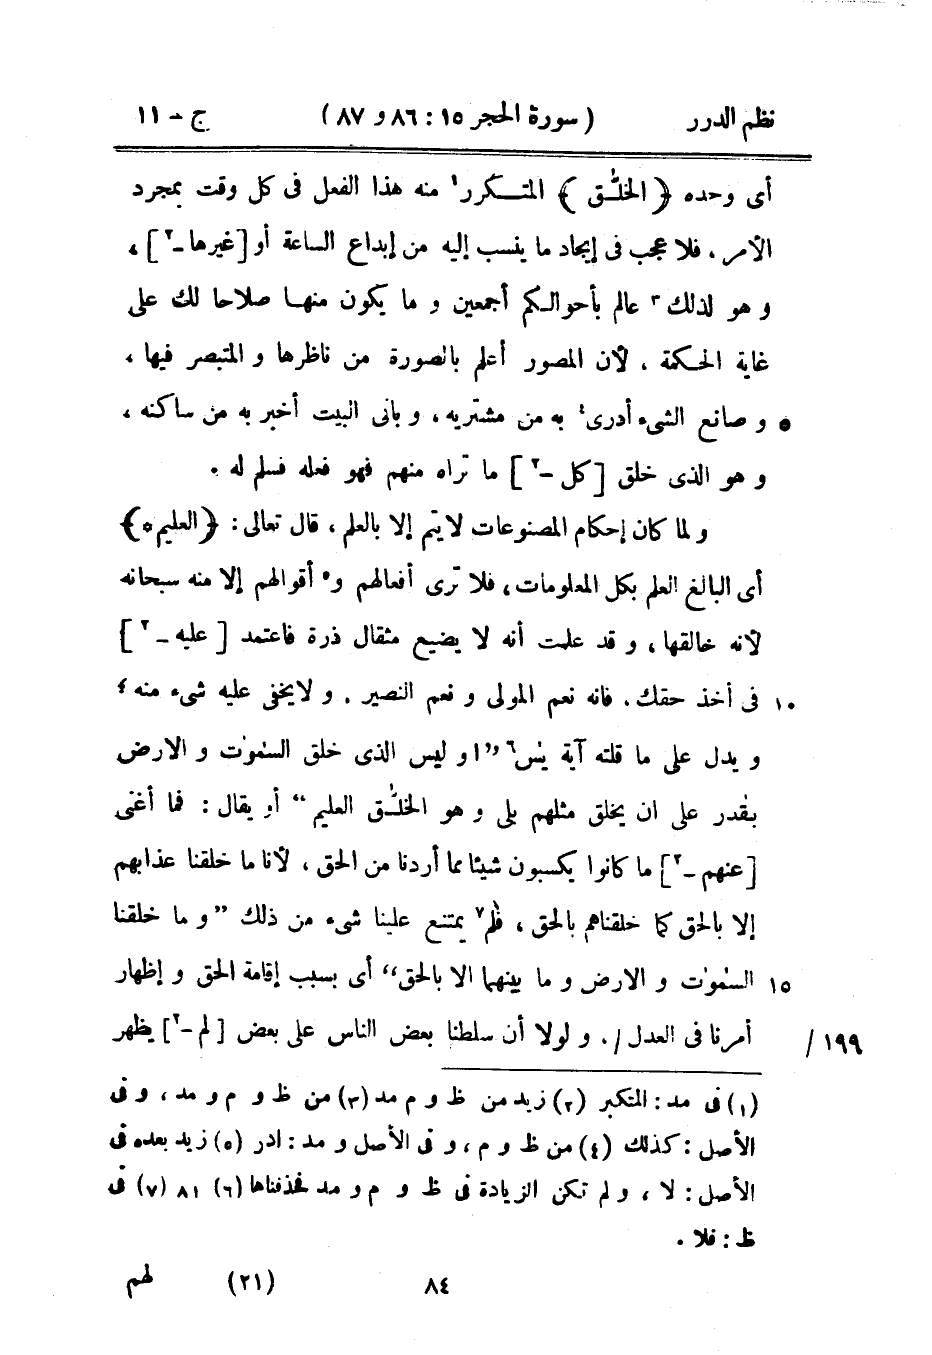 نظم الدرر ( سورة الحجر ١٥ : ٨٦ و ٨٧ ) ج - ١١
أى وحده ﴿ الخلّٰق ﴾ المتكرر١ منه هذا الفعل فى كل وقت بمجرد
الأمر ، فلا عجب فى إيجاد ما ينسب إليه من إبداع الساعة أو [غيرها -٢] ،
و هو لذلك٣ عالم بأحوالكم أجمعين و ما يكون منها صلاحا لك على
غاية الحكمة ، لأن المصور أعلم بالصورة من ناظرها و المتبصر فيها ،
٥ و صانع الشىء أدرى٤ به من مشتريه ، و بانى البيت أخبر به من ساكنه ،
و هو الذى خلق [كل -٢] ما تراه منهم فهو فعله فسلم له .
و لما كان إحكام المصنوعات لا يتم إلا بالعلم ، قال تعالى : ﴿ العليم ه﴾
أى البالغ العلم بكل المعلومات ، فلا ترى أفعالهم و٥ أقوالهم إلا منه سبحانه
لأنه خالقها ، و قد علمت أنه لا يضيع مثقال ذرة فاعتمد [ عليه -٢ ]
١٠ فى أخذ حقك ، فانه نعم المولى و نعم النصير ، و لا يخفى عليه شىء منه ؛
و يدل على ما قلته آية يٰس٦ ”ا و ليس الذى خلق السمٰوٰت و الارض
بقٰدر على ان يخلق مثلهم بلى و هو الخلّٰق العليم “ أو يقال : فما أغنى
[عنهم -٢] ما كانوا يكسبون شيئا مما أردنا من الحق ، لأنا ما خلقنا عذابهم
إلا بالحق كما خلقناهم بالحق ، فلم٧ يمتنع علينا شىء من ذلك ” و ما خلقنا
١٥ السمٰوٰت و الارض و ما بينهما الا بالحق“ أى بسبب إقامة الحق و إظهار
١٩٩ / أمرنا فى العدل / . و لولا أن سلطنا بعض الناس على بعض [لم -٢] يظهر
(١) فى مد : المتكبر (٢) زيد من ظ و م مد (٣) من ظ و م و مد ، و فى
الأصل : كذلك (٤) من ظ و م ، و فى الأصل و مد : ادر (٥) زيد بعده فى
الأصل : لا ، و لم تكن الزيادة فى ظ و م و مد فحذفناها (٦) ٨١ (٧) فى
ظ : فلا .
٨٤ (٢١) لهم